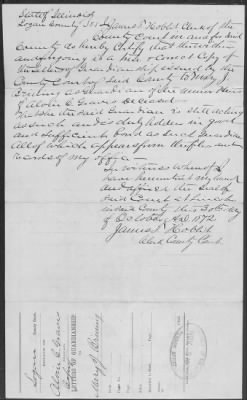 State of Illinois
Logan County SS I James T Hoblit Clerk of the
County Court in and for Said
County do hereby Certify that the within
and foregoing is a true & correct Copy of
the Letters of Guardianship issued by the
County Court of Said County to Mary J
as Guardian of the minor Heirs
of Alvin C Graves deceased
That the said Guardian is still acting
as such and is duly holden in good
and Sufficient Bond as such Guardian
All of which appears from the files and
records of my office
In witness whereof I
have hereunto set my hand
and affixed the Seal of
Said Court at Lincoln
in said County this 30th day
of October A.D. 1872
James T Hoblit
Clerk County Court
Logan
Alvin C Graves
LETTERS OF GUARDIANSHIP
Mary J